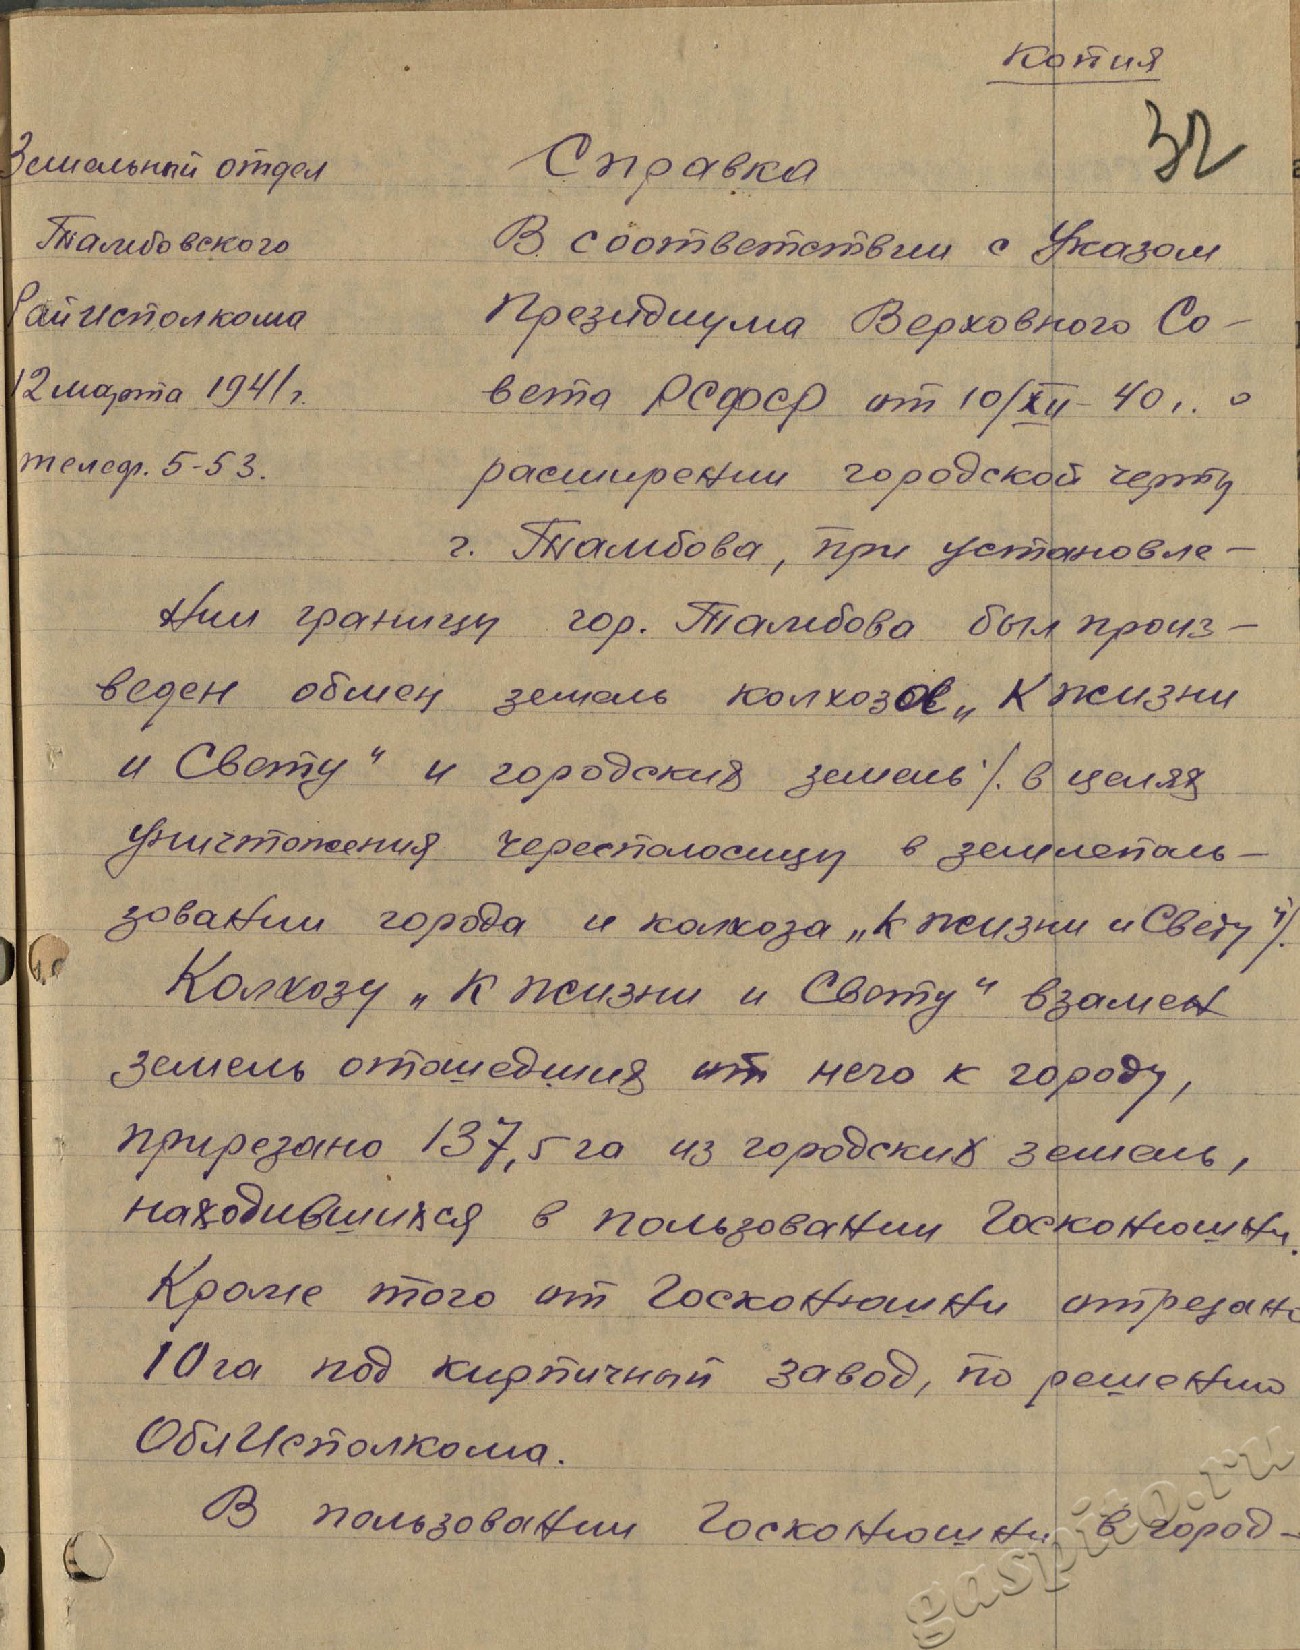 Копия
32
Земельный отдел
Тамбовского
РайИсполкома
12 марта 1941 г.
телеф. 5-53.
Справка
В соответствии с Указом
Президиума Верховного Со-
вета РСФСР от 10/XII-40 г. о
расширении городской черты
г. Тамбова, при установле-
нии границы гор. Тамбова был произ-
веден обмен земель колхозов „К жизни
и Свету" и городских земель /. в целях
уничтожения чересполосицы в землеполь-
зовании города и колхоза „К жизни и Свету" /.
Колхозу „К жизни и Свету" взамен
земель отошедших от него к городу,
прирезано 137,5 га из городских земель,
находившихся в пользовании Госконюшни.
Кроме того от Госконюшни отрезано
10 га под кирпичный завод, по решению
ОблИсполкома.
В пользовании Госконюшни в город-
gaspito.ru